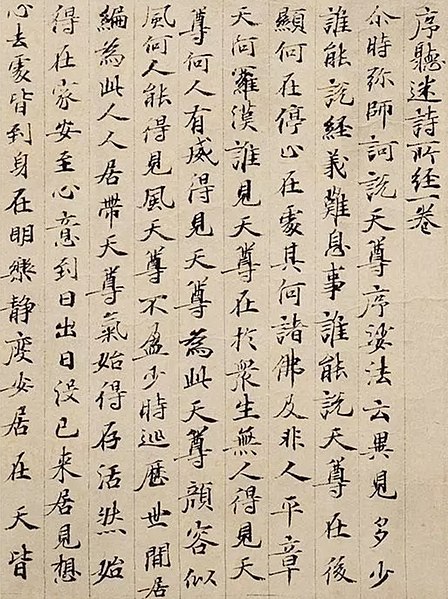 序聽迷詩所經一卷
尒時弥師訶說天尊序娑法云異見多少
誰能說經義難息事誰能說天尊在後
顯何在停止在處其何諸佛及非人平章
天何羅漢誰見天尊在於衆生無人得見天
尊何人有威得見天尊為此天尊顔容似
風何人能得見風天尊不盈少時巡歷世間居
編為此人人居帶天尊氣始得存活然始
得在家安至心意到日出日没已来居見想
心去處皆到身在明樂静度安居在天皆